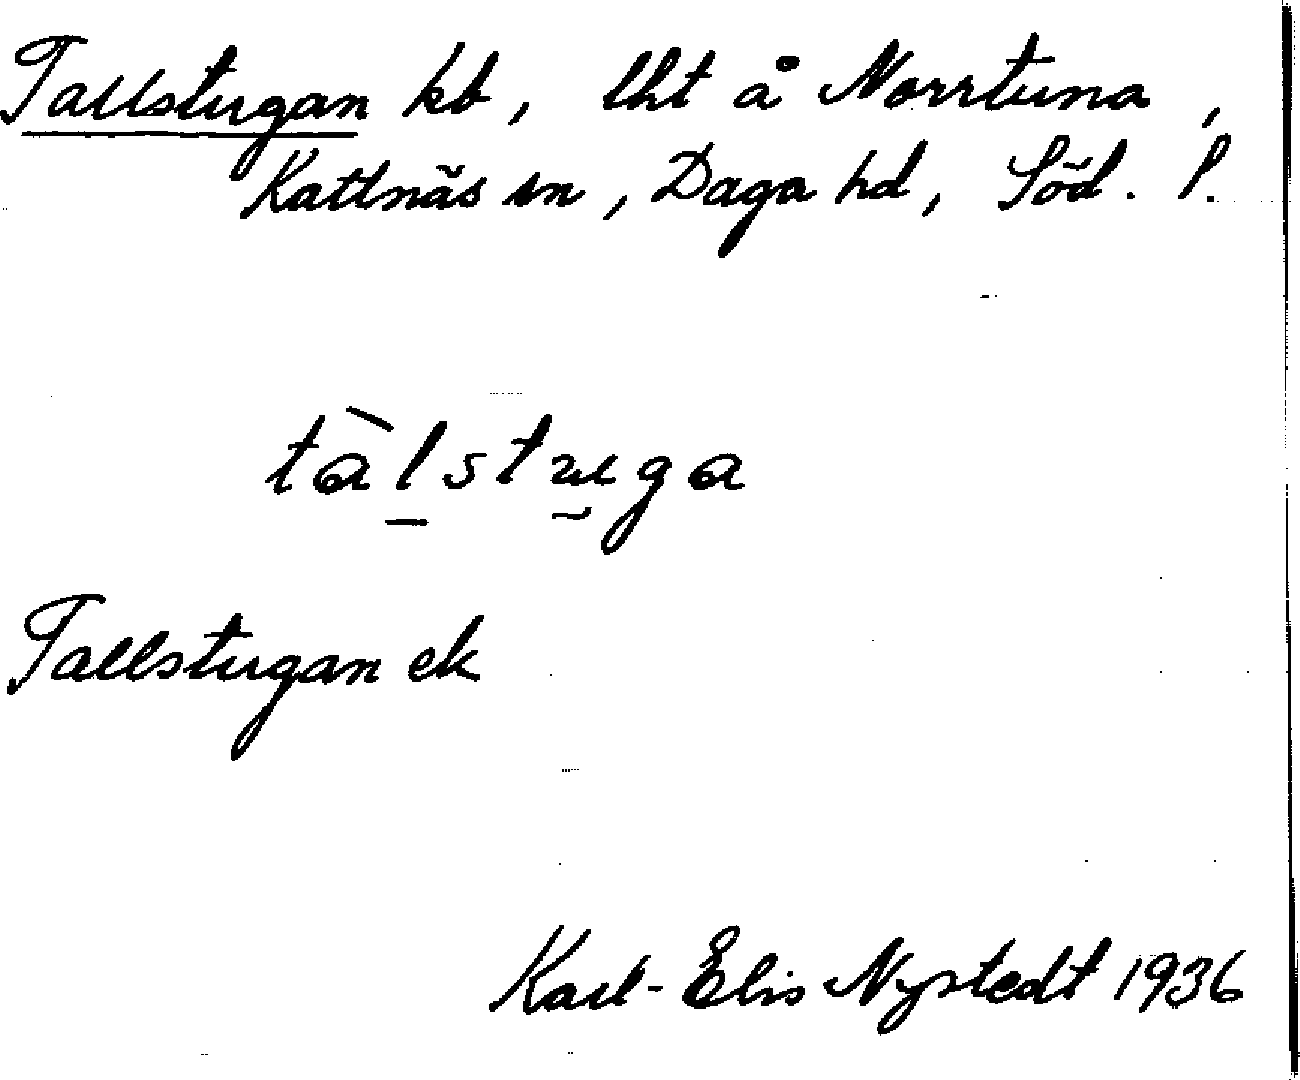 Tallstugan kb, lht å Norrtuna,
Kattnäs sn, Daga hd, Söd. l.
tàl̠stṵga
Tallstugan ek
Karl-Elis Nystedt 1936